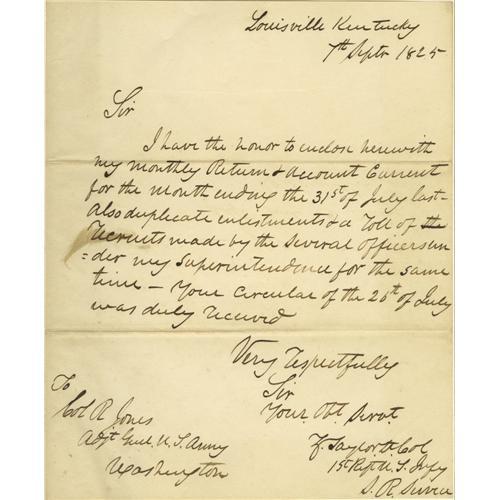 Louisville Kentucky
7th Septr 1825
Sir
I have the honor to enclose herewith
my monthly Return & Account Current
for the month ending the 31st of July last-
also duplicate enlistments & a Roll of the
Recruits made by the Several officers un
=der my Superintendence for the same
time - Your Circular of the 26th of July
was duly received
Very respectfully
Sir
Your Obt Servt.
Z. Taylor Lt Col
1st Regt U. S. Infy
S. R. Service
To
Col R Jones
Adjt Genl U. S Army
Washington